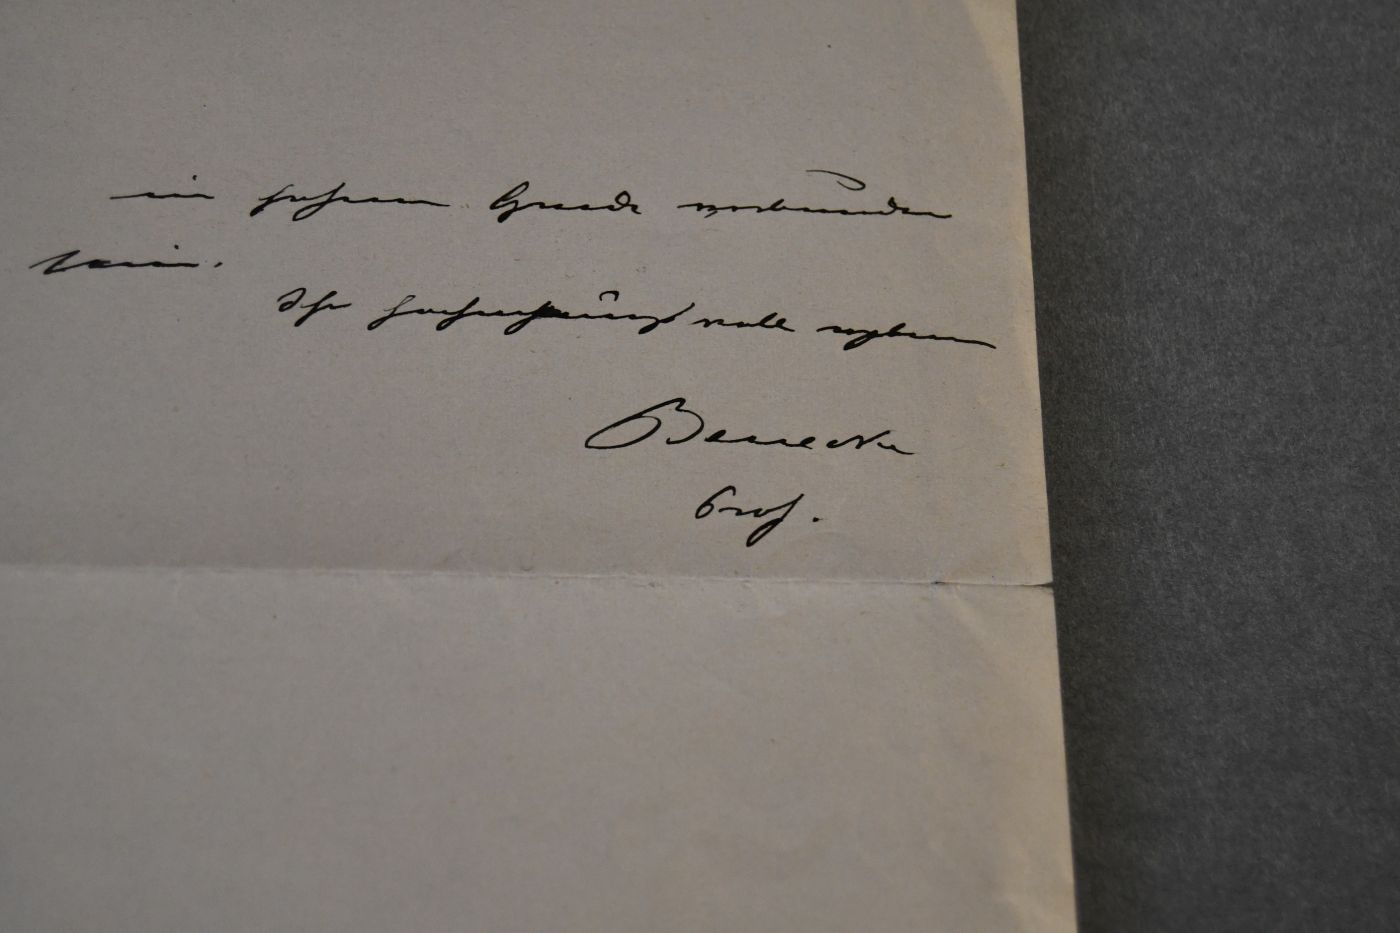 in hohem Grade verbunden
sein.
Ihr hochachtungsvoll ergebener
Benecke
Prof.